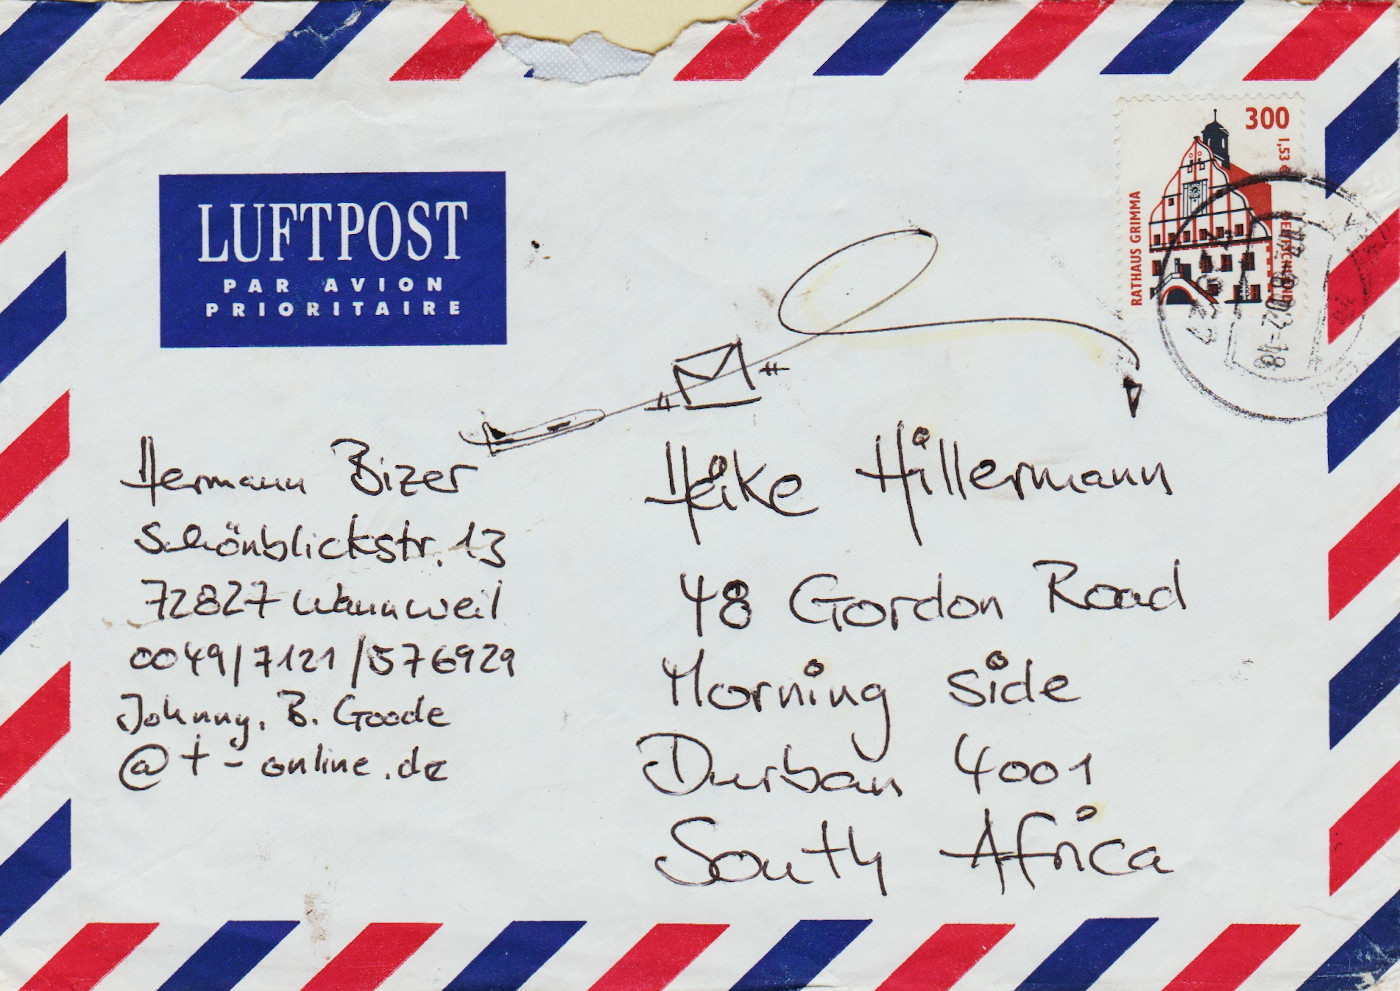 LUFTPOST
PAR AVION
PRIORITAIRE
300
1,53 €
RATHAUS GRIMMA
DEUTSCHLAND
Hermann Bizer
Schönblickstr. 13
72827 Wannweil
0049/7121/576929
Johnny. B. Goode
@t-online.de
Heike Hillermann
48 Gordon Road
Morning side
Durban 4001
South Africa